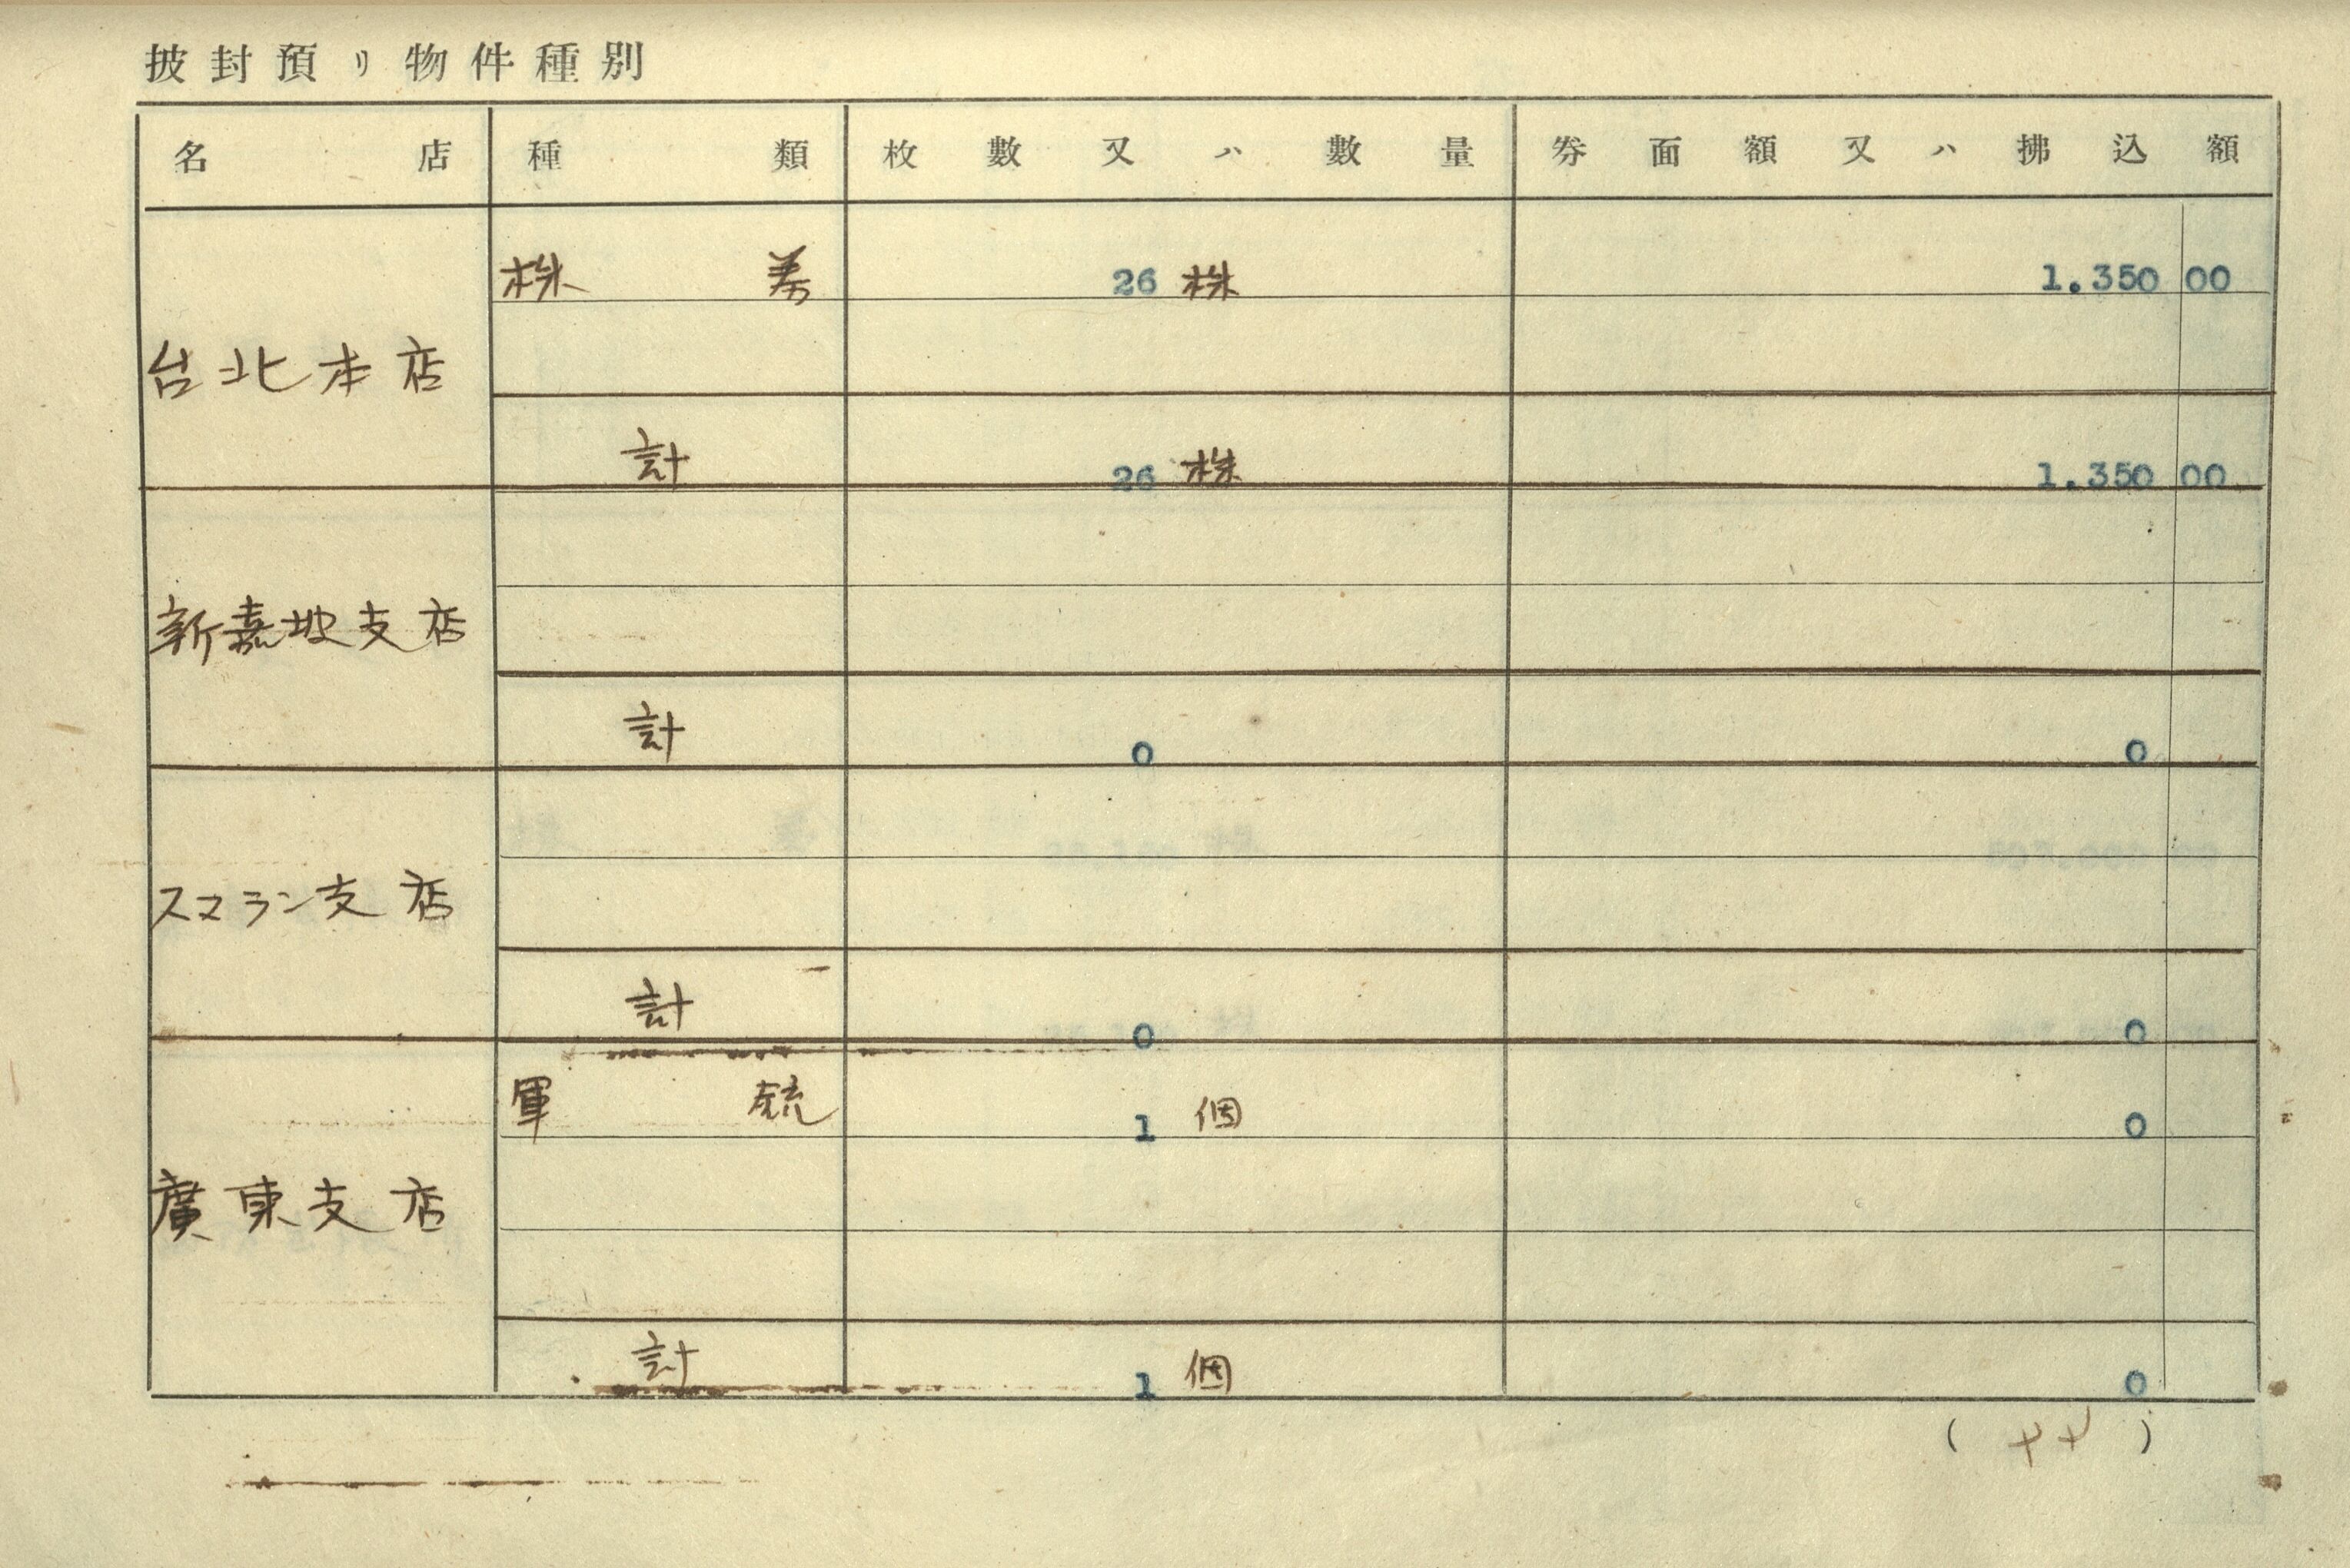 披封預リ物件種別
名店 種類 枚數又ハ數量 券面額又ハ拂込額
株券 26 株 1.350 00
台北本店
計 26 株 1.350 00
新嘉坡支店
計 0 0
スマラン支店
計 0 0
軍銃 1 個 0
廣東支店
計 1 個 0
( 44 )